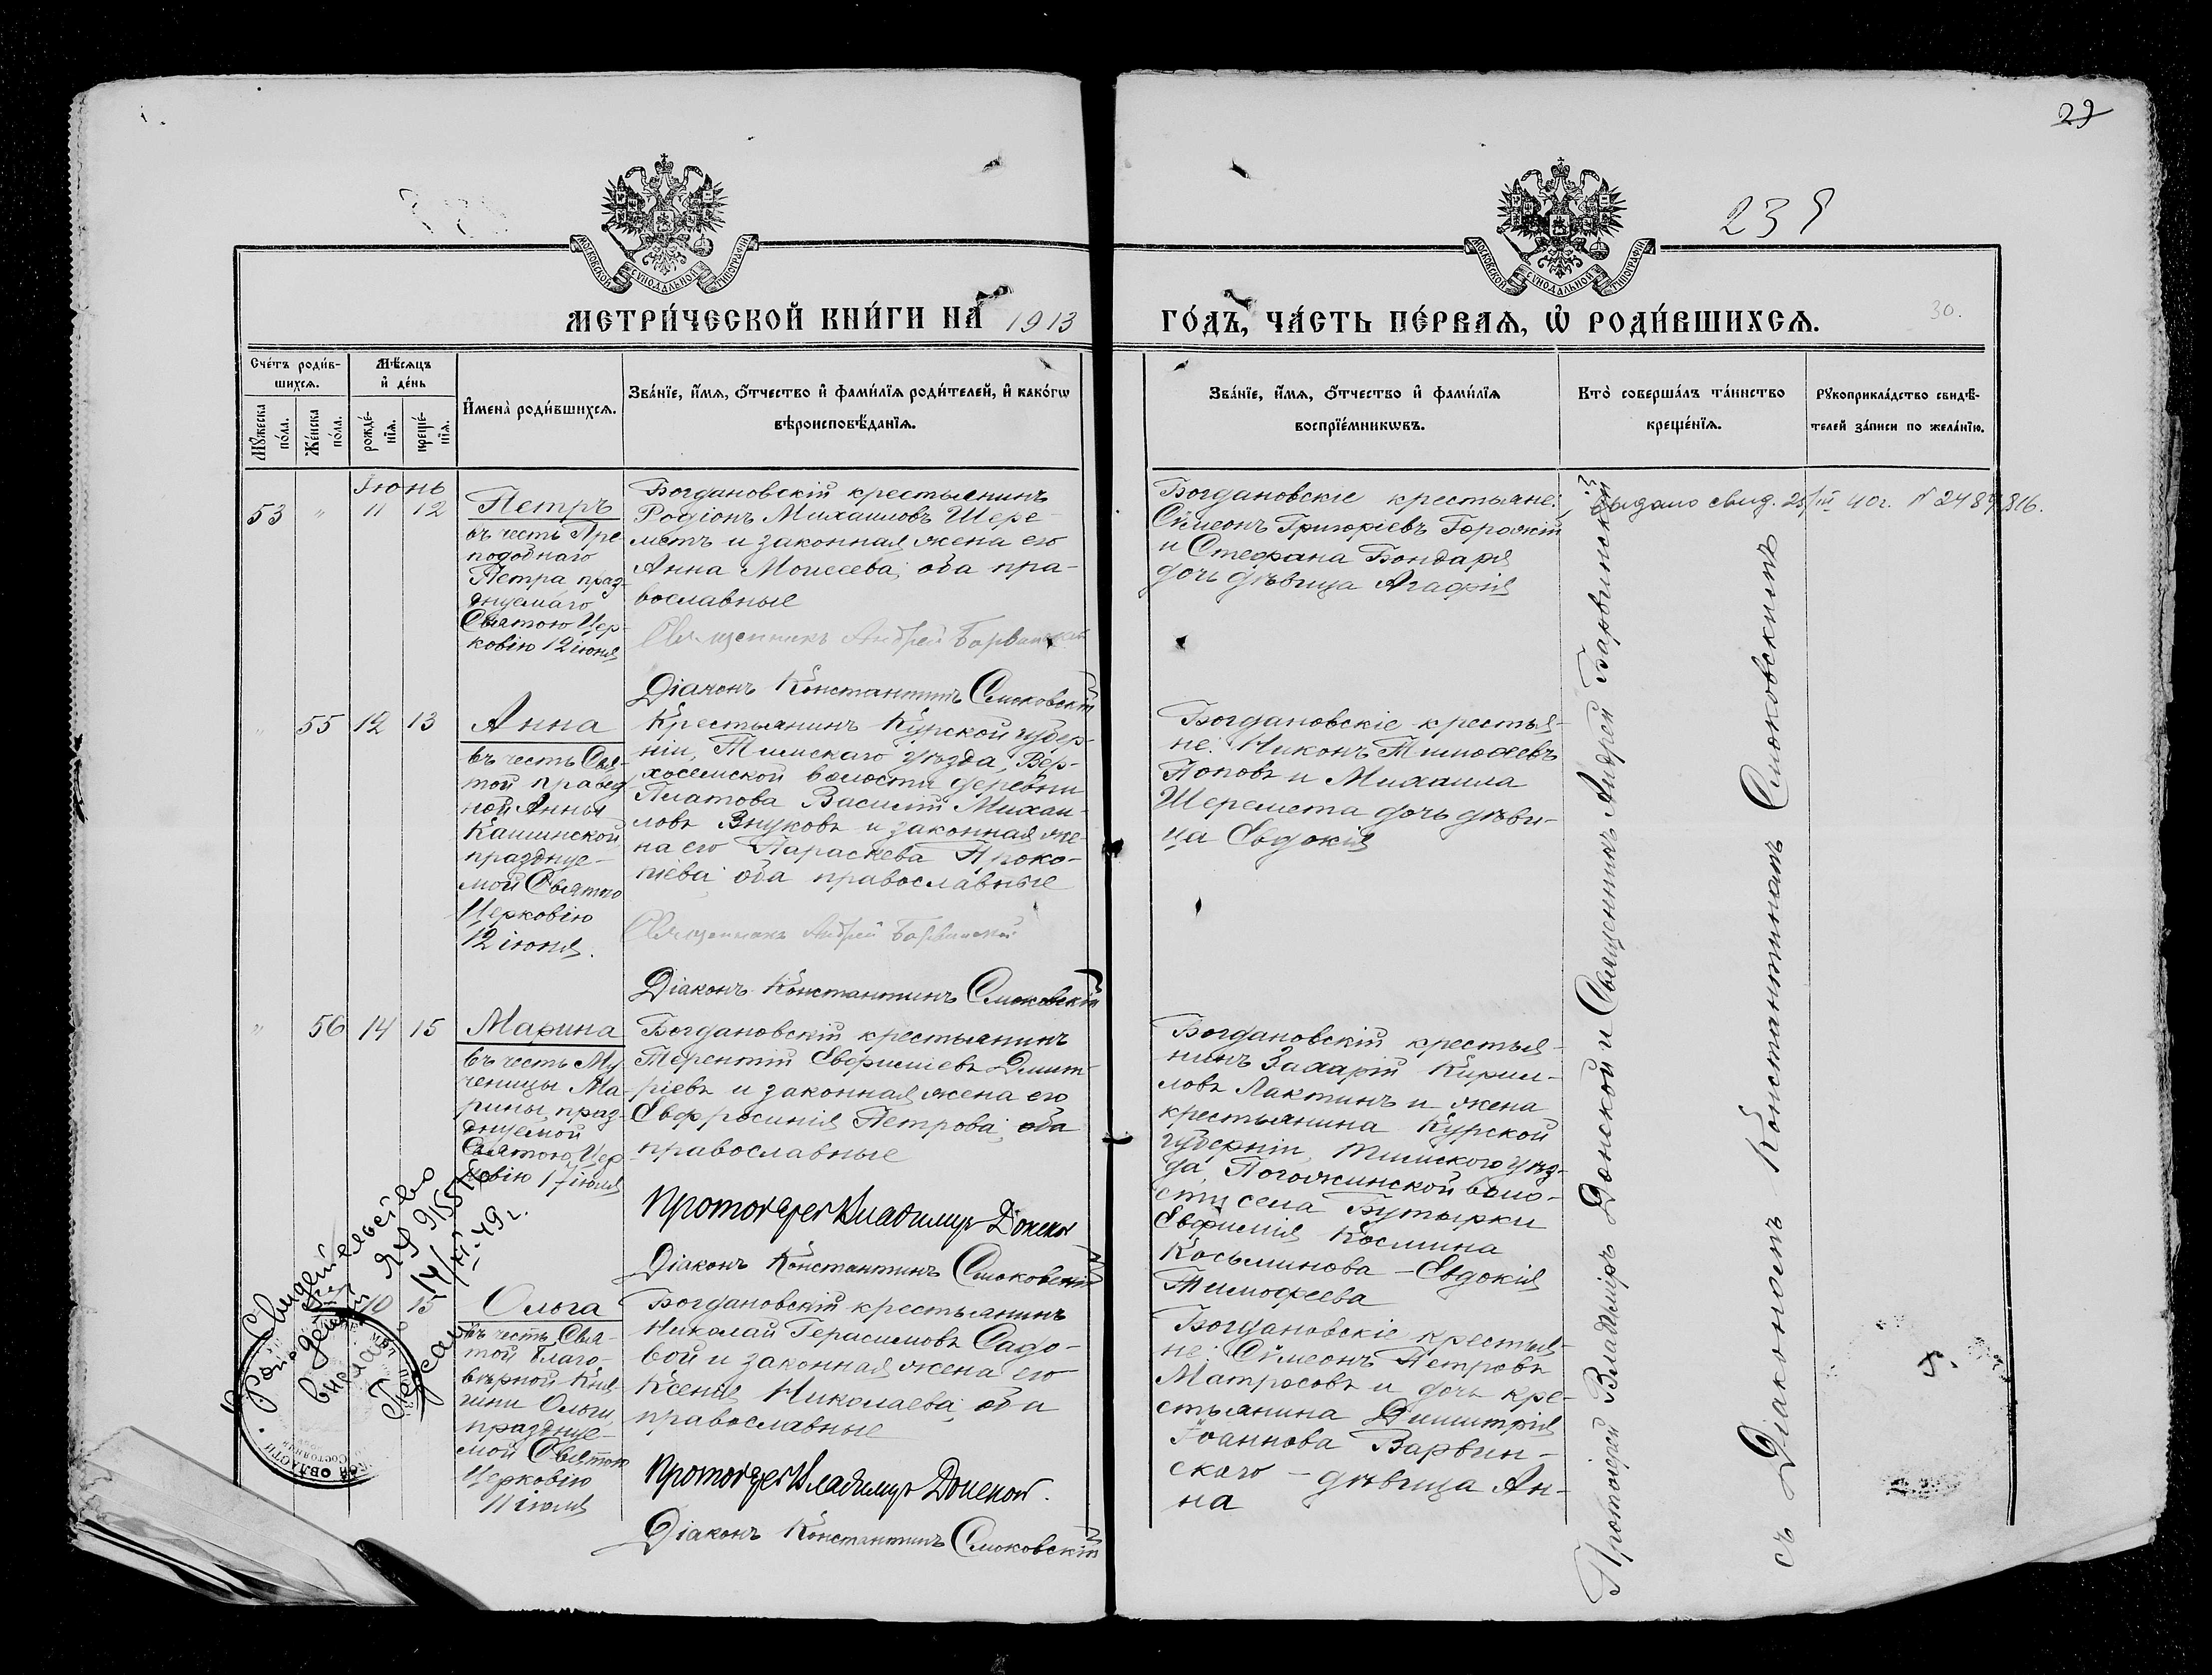 29
239
30.
МОСКОВСКОЙ СѴНОДАЛЬНОЙ ТИПОГРАФІИ
МОСКОВСКОЙ СѴНОДАЛЬНОЙ ТИПОГРАФІИ
МЕТРИ́ЧЕСКОЙ КНИ́ГИ НА 1913
ГО́ДЪ, ЧА́СТЬ ПЕ́РВАѦ, Ѡ҆ РОДИ́ВШИХСѦ.
Сче́тъ роди́в-
шихсѧ.
Мꙋ́жеска
по́ла.
Же́нска
по́ла.
Мѣ́сѧцъ
и҆ де́нь
рожде́-
нїѧ.
креще́-
нїѧ.
И҆мена̀ роди́вшихсѧ.
Зва́нїе, и҆́мѧ, ѻ҆́тчество и҆ фами́лїѧ роди́телей, и҆ како́гѡ
вѣроисповѣ́данїѧ.
Зва́нїе, и҆́мѧ, ѻ҆́тчество и҆ фами́лїѧ
воспрїе́мникѡвъ.
Кто̀ соверша́лъ та́инство
креще́нїѧ.
Рꙋкоприкла́дство свидѣ́-
телей за́писи по жела́нїю.
Іюнь
53 " 11 12
Петръ
въ честь Пре
подобнаго
Петра праз-
днуемаго
Святою Цер-
ковію 12 іюня
Богдановскій крестьянинъ
Родіонъ Михаиловъ Шере-
метъ и законная жена его
Анна Моисеева, оба пра-
вославные
Священникъ Андрей Барвинскій
Діаконъ Константинъ Смоковскій
Богдановскіе крестьяне:
Сѵмеонъ Григоріевъ Горожій
и Стефана Бондаря
дочь дѣвица Агафія
выдано свид. 25/III 40 г. № 2484816.
" 55 12 13
Анна
въ честь Свя-
той правед
ной Анны
Кашинской
празднуе-
мой Святою
Церковію
12 іюня.
Крестьянинъ Курской губер-
ніи, Тимскаго уѣзда, Вер-
хосемской волости деревни
Платова Василій Михаи-
ловъ Внуковъ и законная же-
на его Параскева Проко-
піева, оба православные
Священникъ Андрей Барвинскій
Діаконъ Константинъ Смоковскій
Богдановскіе крестья-
не: Никонъ Тимофеевъ
Поповъ и Михаила
Шеремета дочь дѣви-
ца Евдокія
" 56 14 15
Марина
въ честь Му
ченицы Ма-
рины, праз-
днуемой
Святою Цер
ковію 17 іюля
Богдановскій крестьянинъ
Терентій Евфиміевъ Дмит-
ріевъ и законная жена его
Евфросинія Петрова, оба
православные
Протоіерей Владиміръ Донской
Діаконъ Константинъ Смоковскій
Богдановскій крестья-
нинъ Захарій Кирил-
ловъ Лактинъ и жена
крестьянина Курской
губерніи, Тимского уѣз-
да, Погожинской воло-
сти села Бутырки
Евфимія Космина
Косьминова - Евдокія
Тимофеева
10 15
Ольга
въ честь Свя-
той Благо-
вѣрной Кня-
гини Ольги,
празднуе-
мой Святою
Церковію
11 іюля
Богдановскій крестьянинъ
Николай Герасимовъ Садо-
вой и законная жена его
Ксенія Николаева, оба
православные
Протоіерей Владиміръ Донской.
Діаконъ Константинъ Смоковскій
Богдановскіе крестья-
не: Сѵмеонъ Петровъ
Матросовъ и дочь кре-
стьянина Димитрія
Іоаннова Варвин-
скаго - дѣвица Ан-
на
Протоіерей Владиміръ Донской и Священникъ Андрей Барвинскій
съ Діакономъ Константиномъ Смоковскимъ
Свидетельство
14/XI-49 г.
ОБЛАСТИ